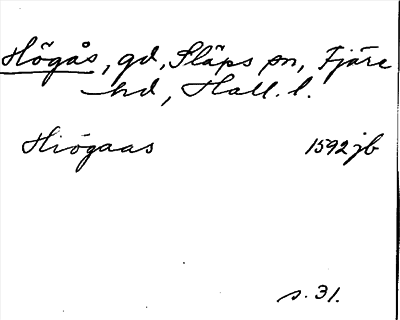 Högås, gd, Släps sn, Fjäre
hd, Hall. l.
Hiögaas 1592 jb
s. 31.